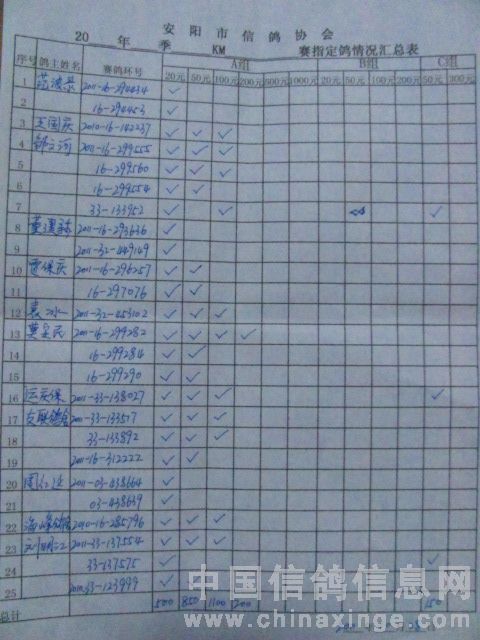 安阳市信鸽协会
20 年 季 KM 赛指定鸽情况汇总表
序号 鸽主姓名 赛鸽环号 A组 B组 C组
20元 50元 100元 200元 500元 1000元 20元 50元 100元 200元 50元 300元
1 2011-16-294434 ✓
2 16-294453 ✓
3 王国庆 2010-16-142237 ✓ ✓ ✓
4 2011-16-299555 ✓ ✓ ✓
5 16-299560 ✓ ✓ ✓
6 16-299554 ✓ ✓
7 33-133952 ✓ ✓ ✓
8 2011-16-293636 ✓
9 2011-32-449149 ✓
10 贾保庆 2011-16-296257 ✓ ✓
11 16-297076 ✓ ✓
12 袁冰 2011-32-453102 ✓ ✓ ✓
13 2011-16-299282 ✓ ✓ ✓ ✓
14 16-299284 ✓ ✓
15 16-299290 ✓ ✓
16 运庆保 2011-33-138027 ✓ ✓ ✓ ✓
17 友联鸽舍 2011-33-133517 ✓ ✓ ✓
18 33-133892 ✓ ✓ ✓
19 2011-16-312222 ✓ ✓
20 2011-03-438664 ✓
21 03-438639 ✓
22 2010-16-285796 ✓ ✓ ✓
23 刘明江 2011-33-137554 ✓ ✓ ✓
24 33-137575 ✓ ✓
25 2010-33-123999 ✓
总计 500 850 1100 200 150
中国信鸽信息网
www.chinaxinge.com